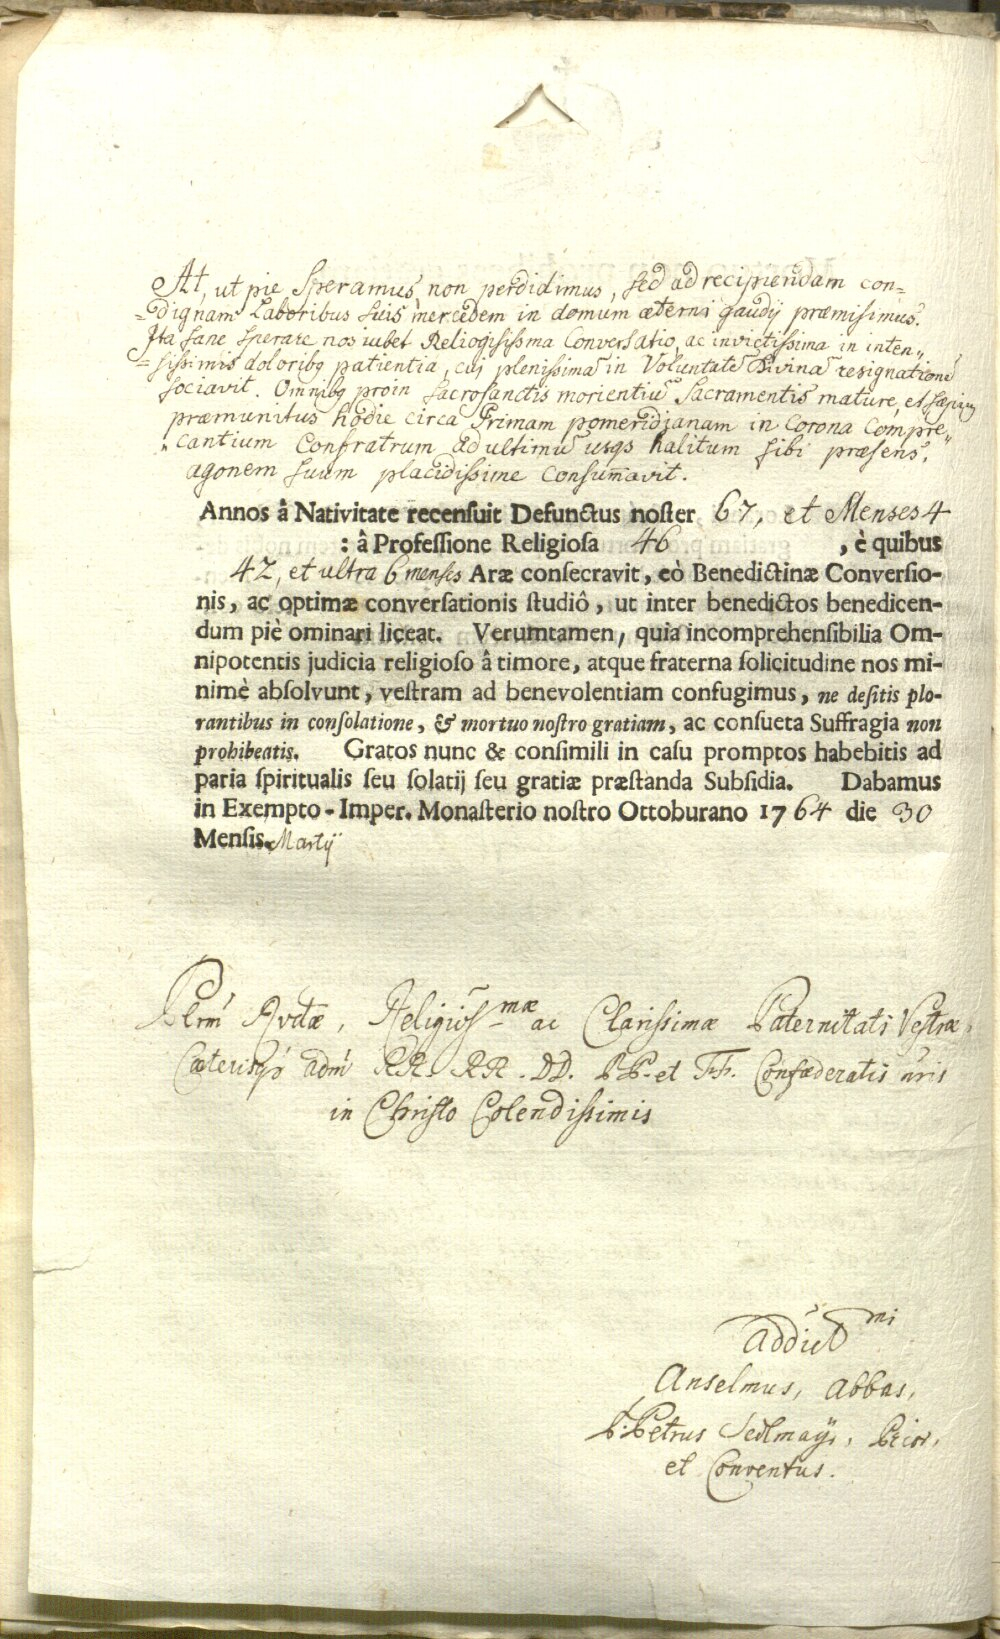 At, ut pie Speramus, non perdidimus, sed ad recipiendam con=
=dignam Laboribus suis mercedem in domum æterni gaudij præmisimus.
Ita sane sperare nos iubet Religiosissma Conversatio, ac invictissima in inten„
=sissimis doloribq patientia, cuj plenissimā in Voluntatē Divinā resignationē
sociavit. Omnibq proin sacrosanctis morientiū Sacramentis mature, et sæpius
præmunitus hodie circa Primam pomeridianam in Corona Compre„
„cantium Confratrum ad ultimū usqs halitum sibi præsens,
agonem suum placidissime Consumavit.
Annos â Nativitate recensuit Defunctus noster 67, et Menses 4
: â Professione Religiosa 46 , è quibus
42, et ultra 6 menses Aræ consecravit, eò Benedictinæ Conversio-
nis, ac optimæ conversationis studiô, ut inter benedictos benedicen-
dum piè ominari liceat. Verumtamen, quia incomprehensibilia Om-
nipotentis judicia religioso â timore, atque fraterna solicitudine nos mi-
nimè absolvunt, vestram ad benevolentiam confugimus, ne desitis plo-
rantibus in consolatione, & mortuo nostro gratiam, ac consueta Suffragia non
prohibeatis. Gratos nunc & consimili in casu promptos habebitis ad
paria spiritualis seu solatij seu gratiæ præstanda Subsidia. Dabamus
in Exempto-Imper. Monasterio nostro Ottoburano 1764 die 30
Mensis. Martij
Plrm̄ Rvdæ, Religiosmæ ac Clarissimæ Paternitati Vestræ,
Cæterisq̄ adm̄ RR. RR. DD. PP. et FF. Confœderatis nr̄is
in Christo Colendissimis
addictmi
Anselmus, Abbas,
P. Petrus Sedlmayr, Prior,
et Conventus.